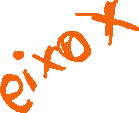 eixo x